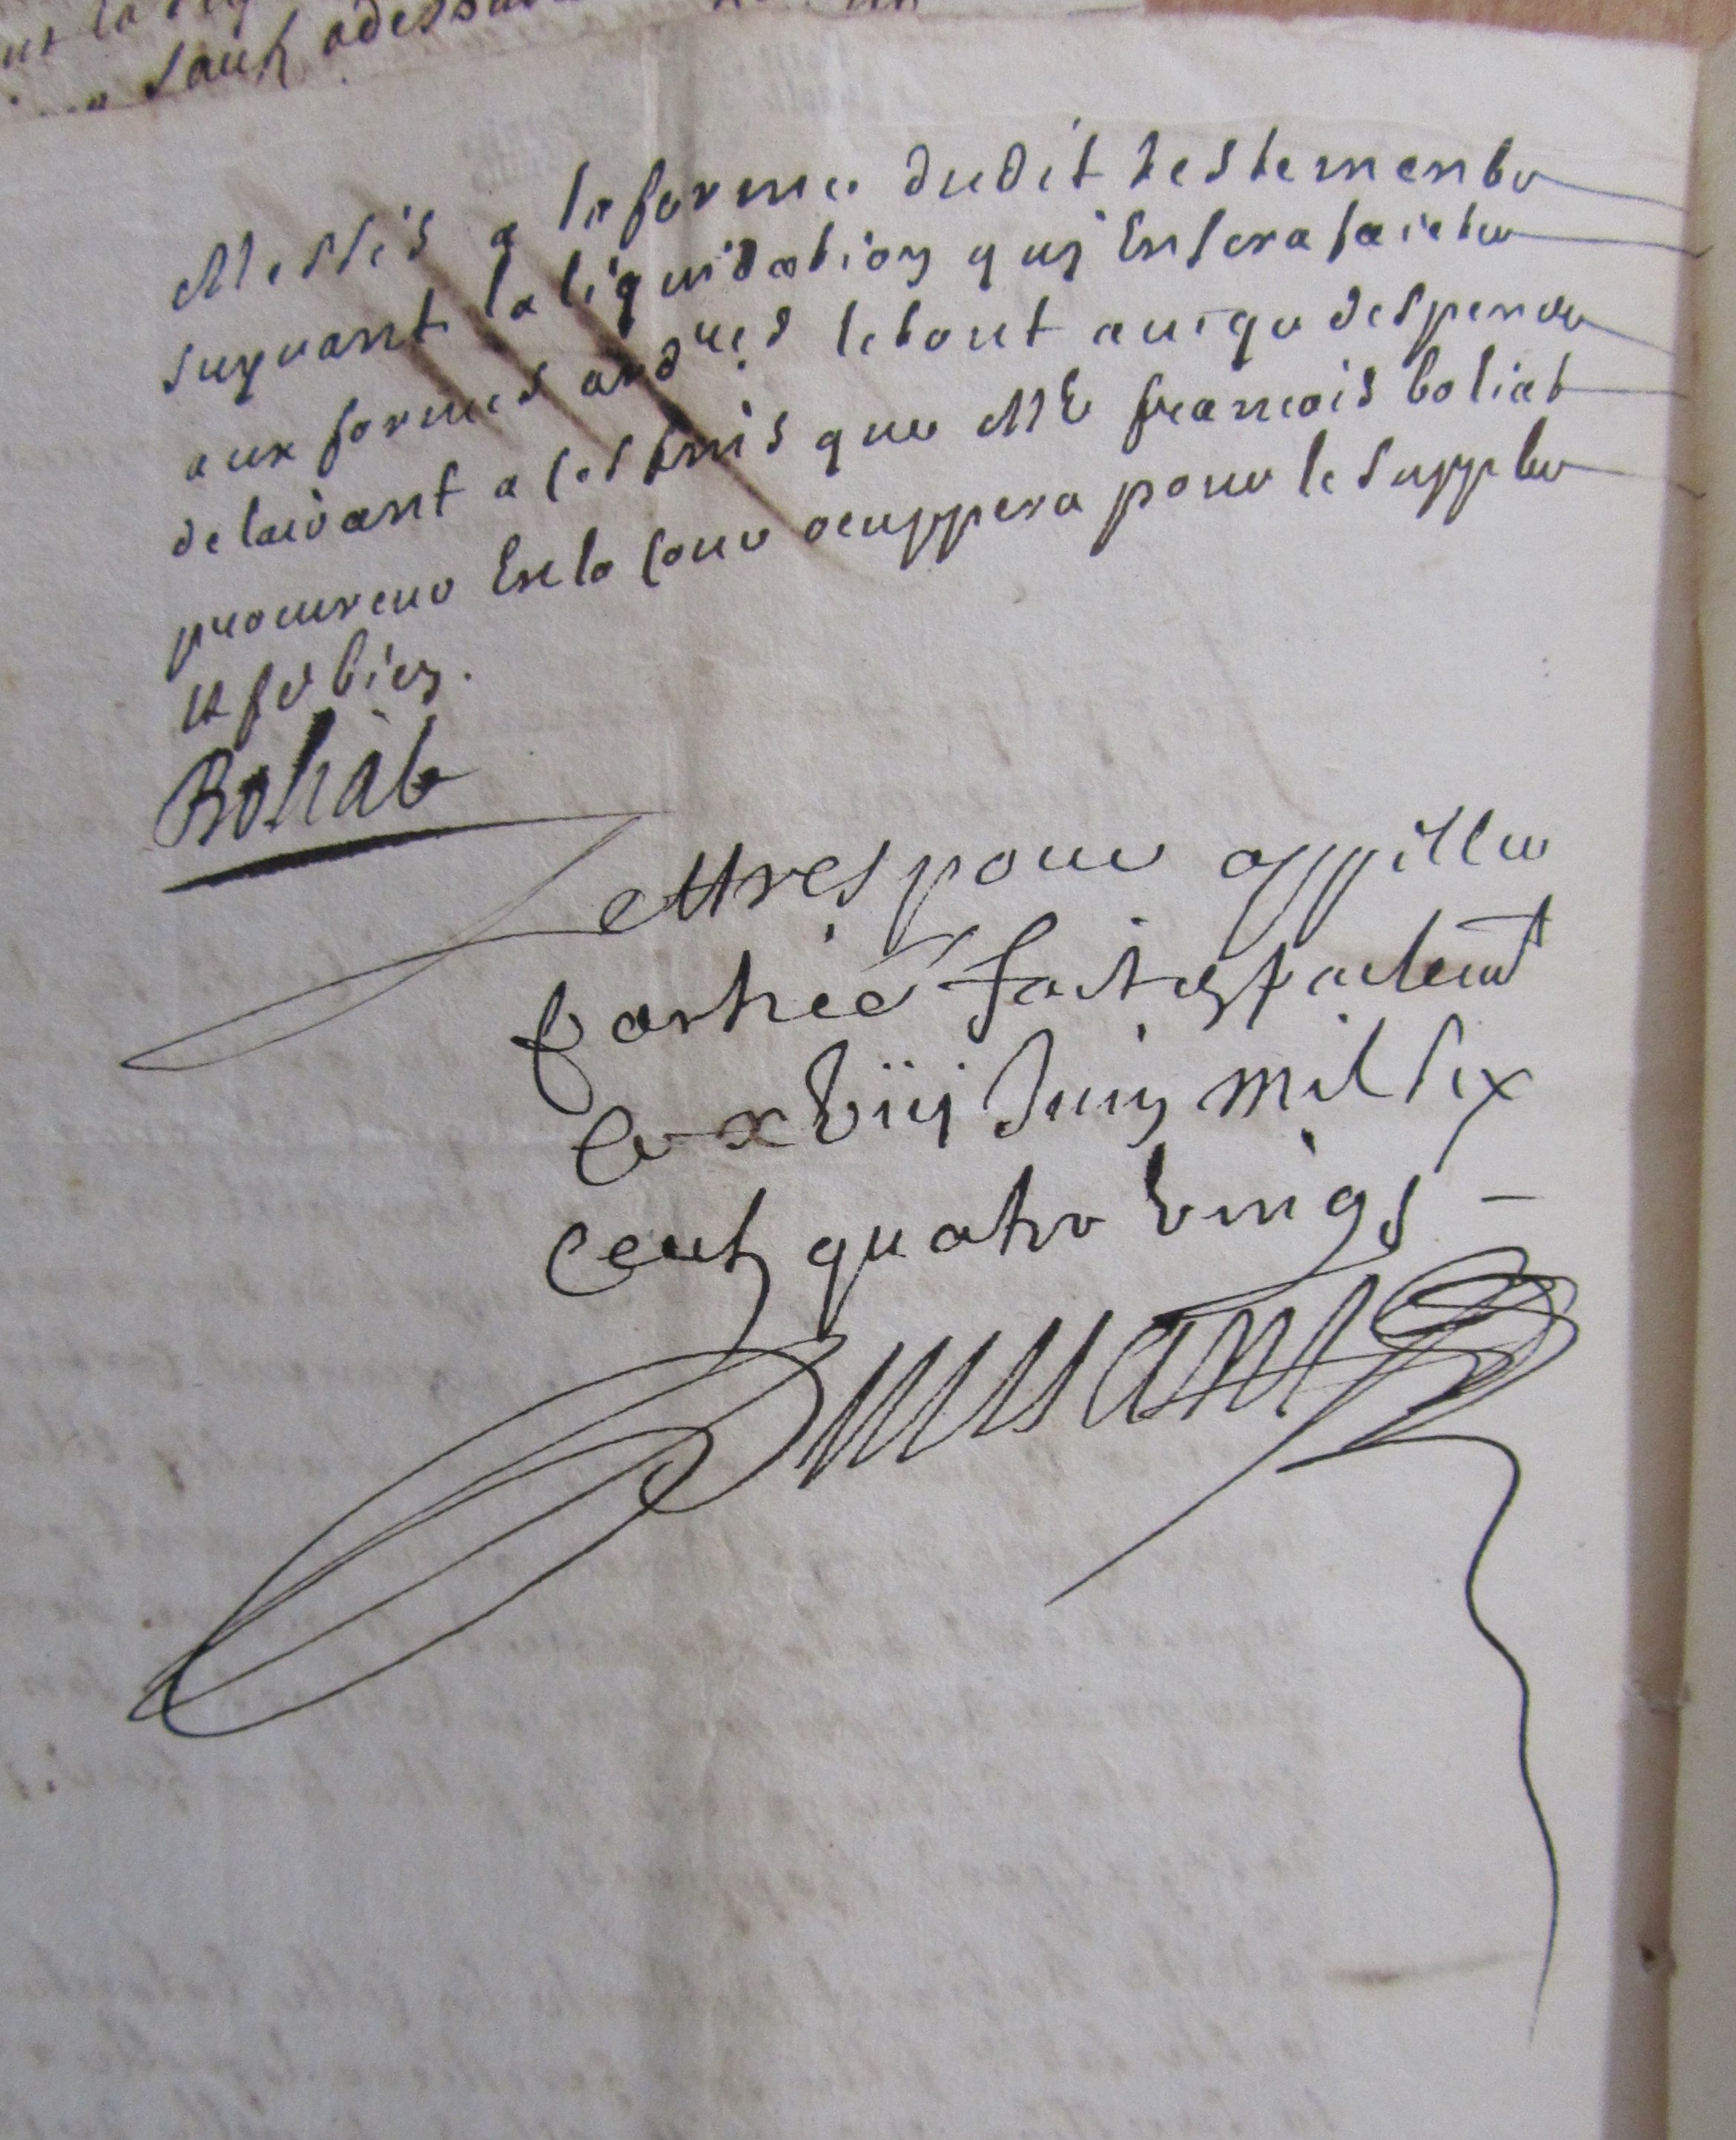 sauf
Messis a la forme dudit testement
suyvant la liquidation quy En sera faicte
aux formes ordres le tout aueq despens
declairant a ces fins que Me francois boliat
procureur En la Cour occuppera pour le supplt
et fe bien.
Boliat
Lettres pour appeller
partiee fait et
le xviij Juin mil six
cent quatre vings